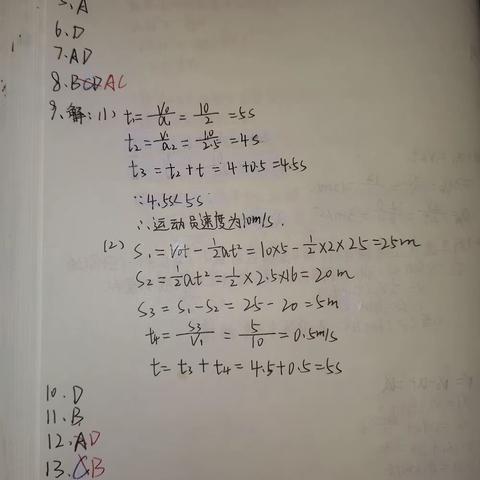 5、A
6、D
7、AD
8、BCDAC
9、解：(1) t₁=V₀/a₁=10/2=5s
t₂=V₁/a₂=10/2.5=4s
t₃=t₂+t=4+0.5=4.5s
∵4.5s<5s
∴运动员速度为10m/s.
(2) S₁=V₀t-½at²=10×5-½×2×25=25m
S₂=½at²=½×2.5×16=20m
S₃=S₁-S₂=25-20=5m
t₄=S₃/V₁=5/10=0.5m/s
t=t₃+t₄=4.5+0.5=5s
10、D
11、B
12、AD
13、CB